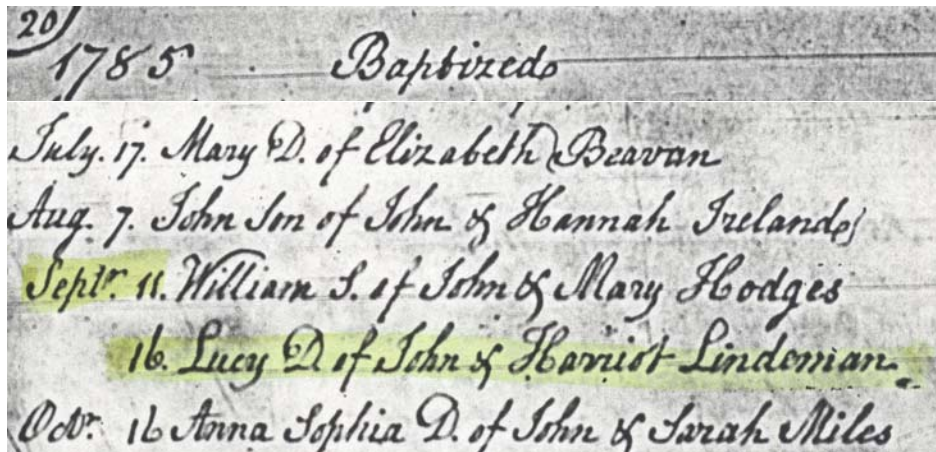 20
1785 Baptized
July. 17. Mary D. of Elizabeth Beavan
Aug. 7. John Son of John & Hannah Ireland
Septr. 11. William S. of John & Mary Hodges
16. Lucy D of John & Harriot Lindeman.
Octr. 16 Anna Sophia D. of John & Sarah Miles